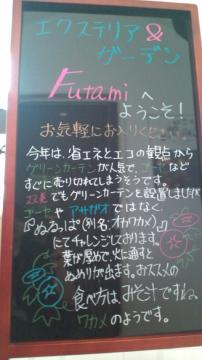 エクステリア&
ガーデン
Futamiへ
ようこそ!
お気軽にお入りくださ
今年は、省エネとエコの観点から
グリーンカーテンが人気で、など
すぐに売り切れてしまうそうです。
でもグリーンカーテンを設置しましたが
ゴーヤやアサガオではなく、
『ぬるっぱ(別名:オカワカメ)』
にてチャレンジしております。
葉が厚めで、火に通すと
ぬめりが出ます。おススメの
食べ方は、みそ汁ですね。
ワカメのようです。